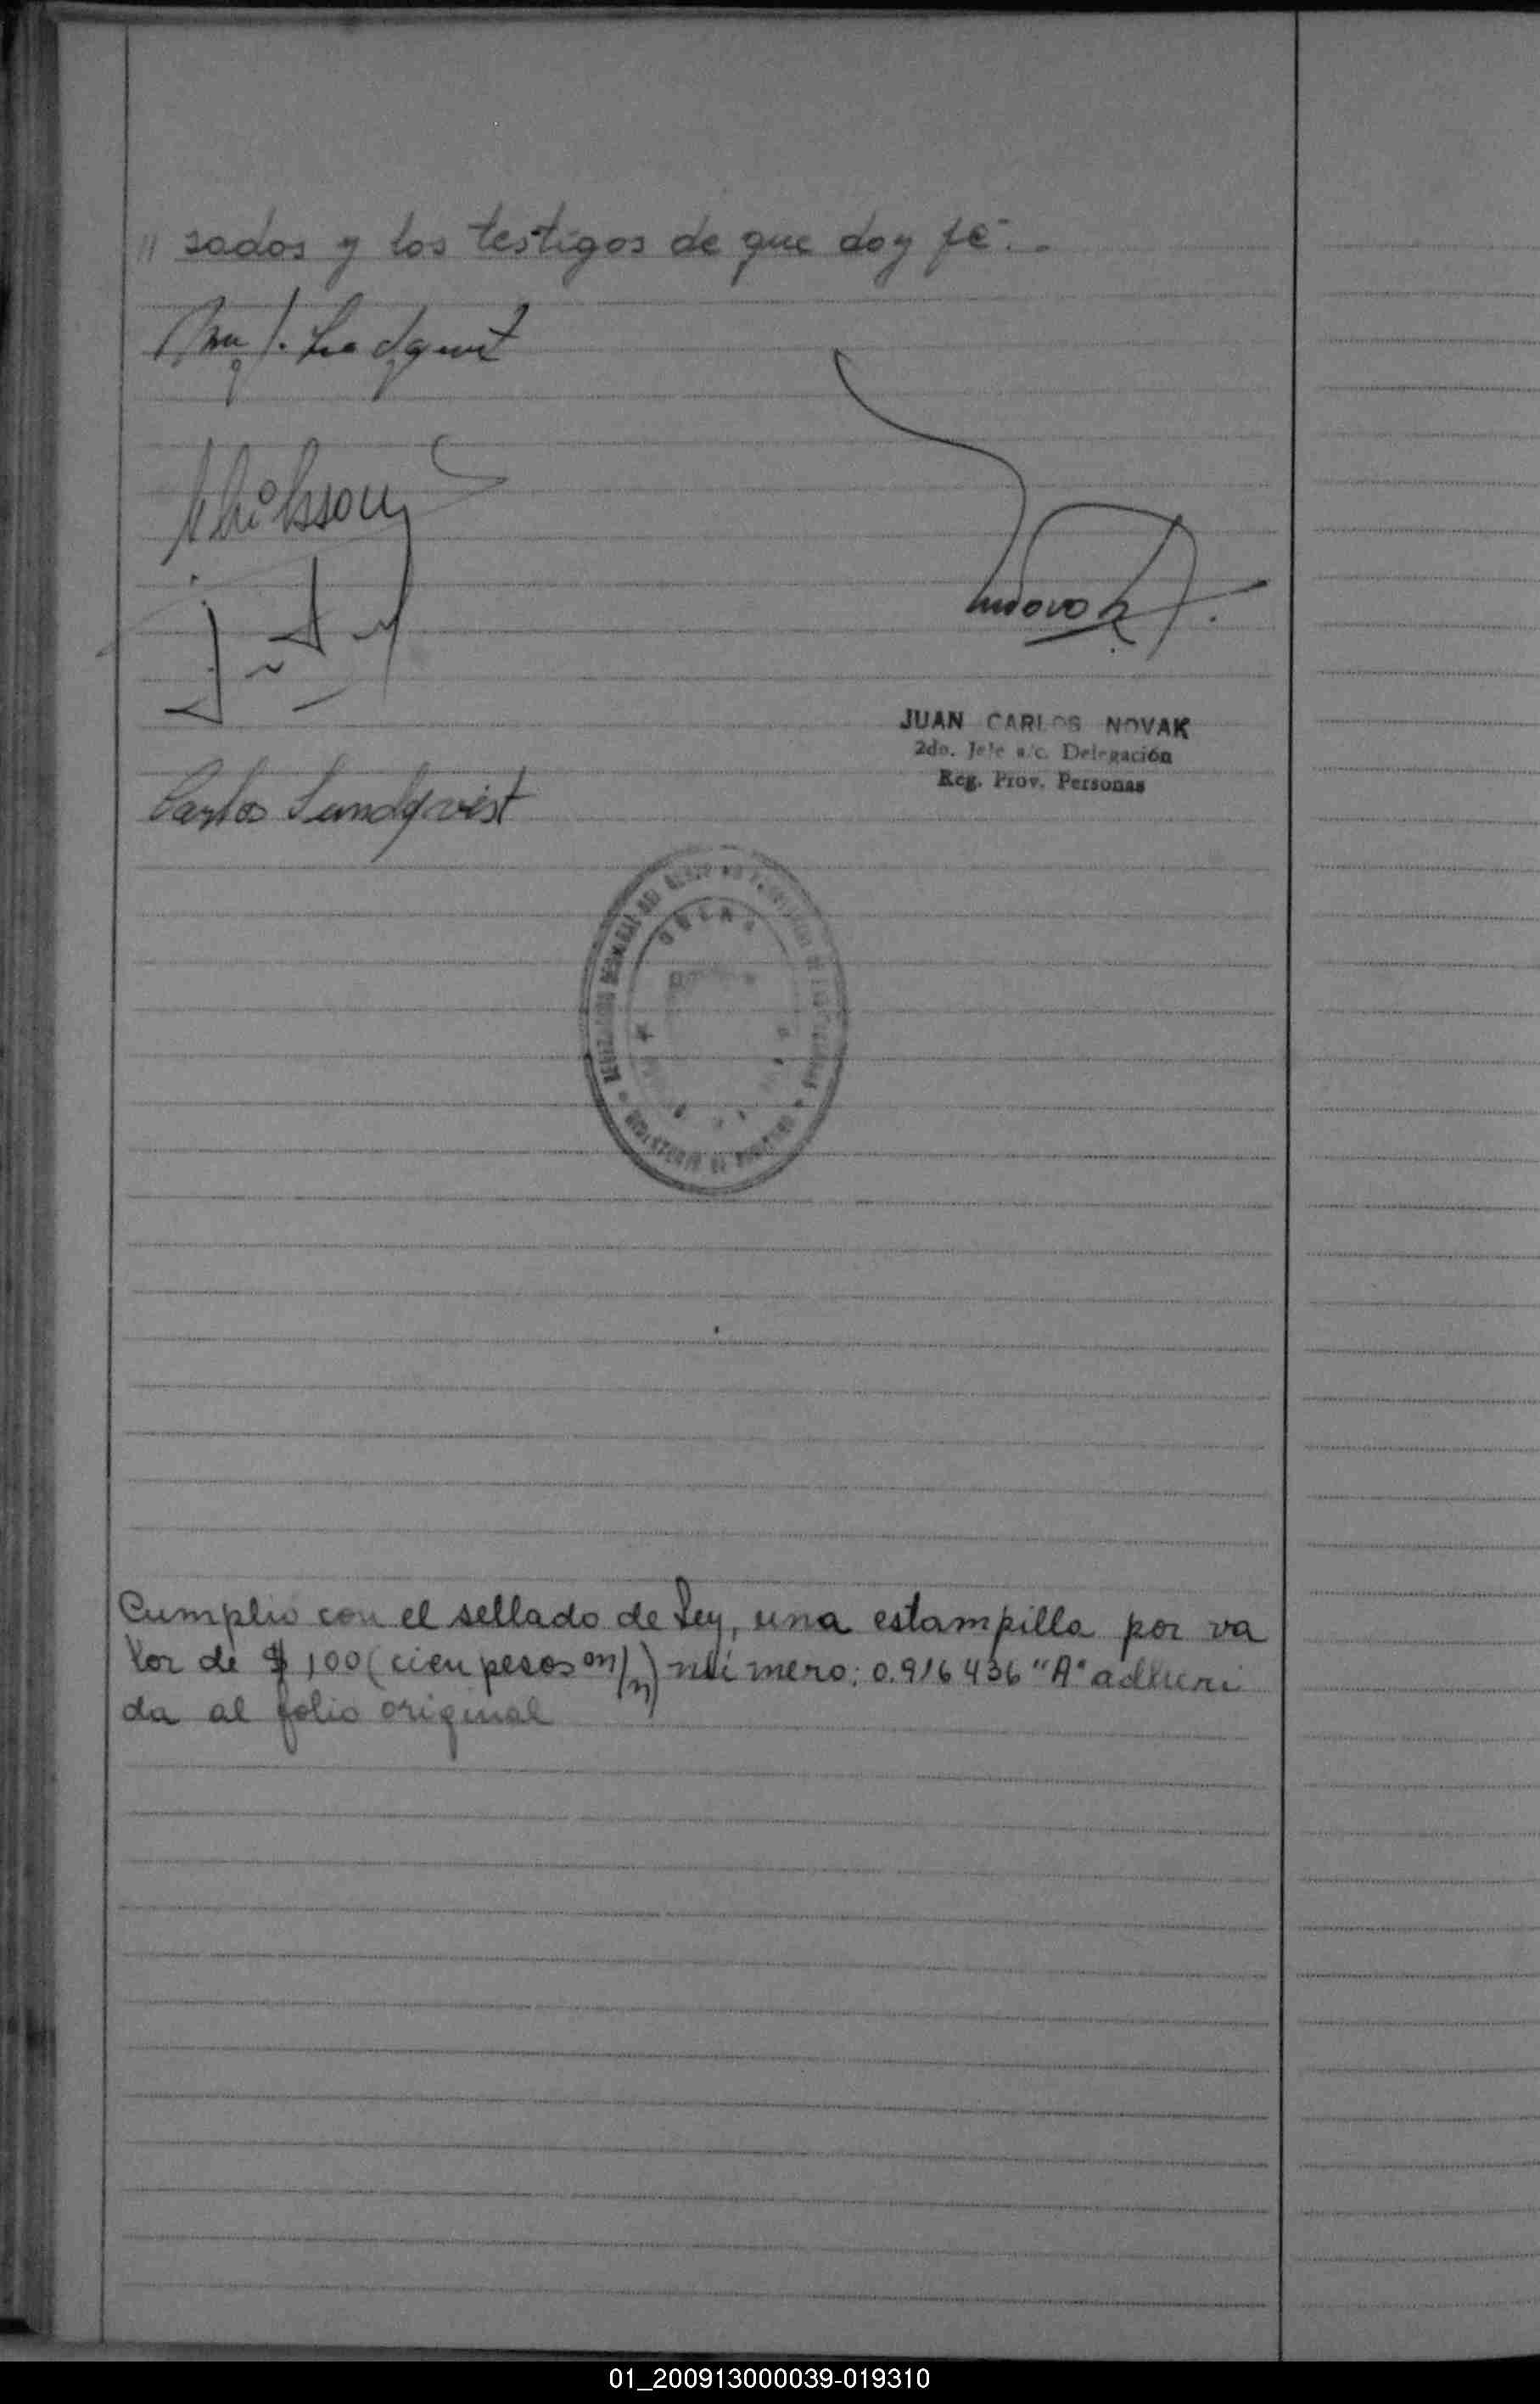 // sados y los testigos de que doy fé.-
Carlos Sundqvist
JUAN CARLOS NOVAK
2do. Jefe a/c. Delegación
Reg. Prov. Personas
OBERA
Cumplio con el sellado de Ley, una estampilla por va
lor de $ 100 (cien pesos m/n) número: 0.916436 "A" adheri
da al folio original
01_200913000039-019310